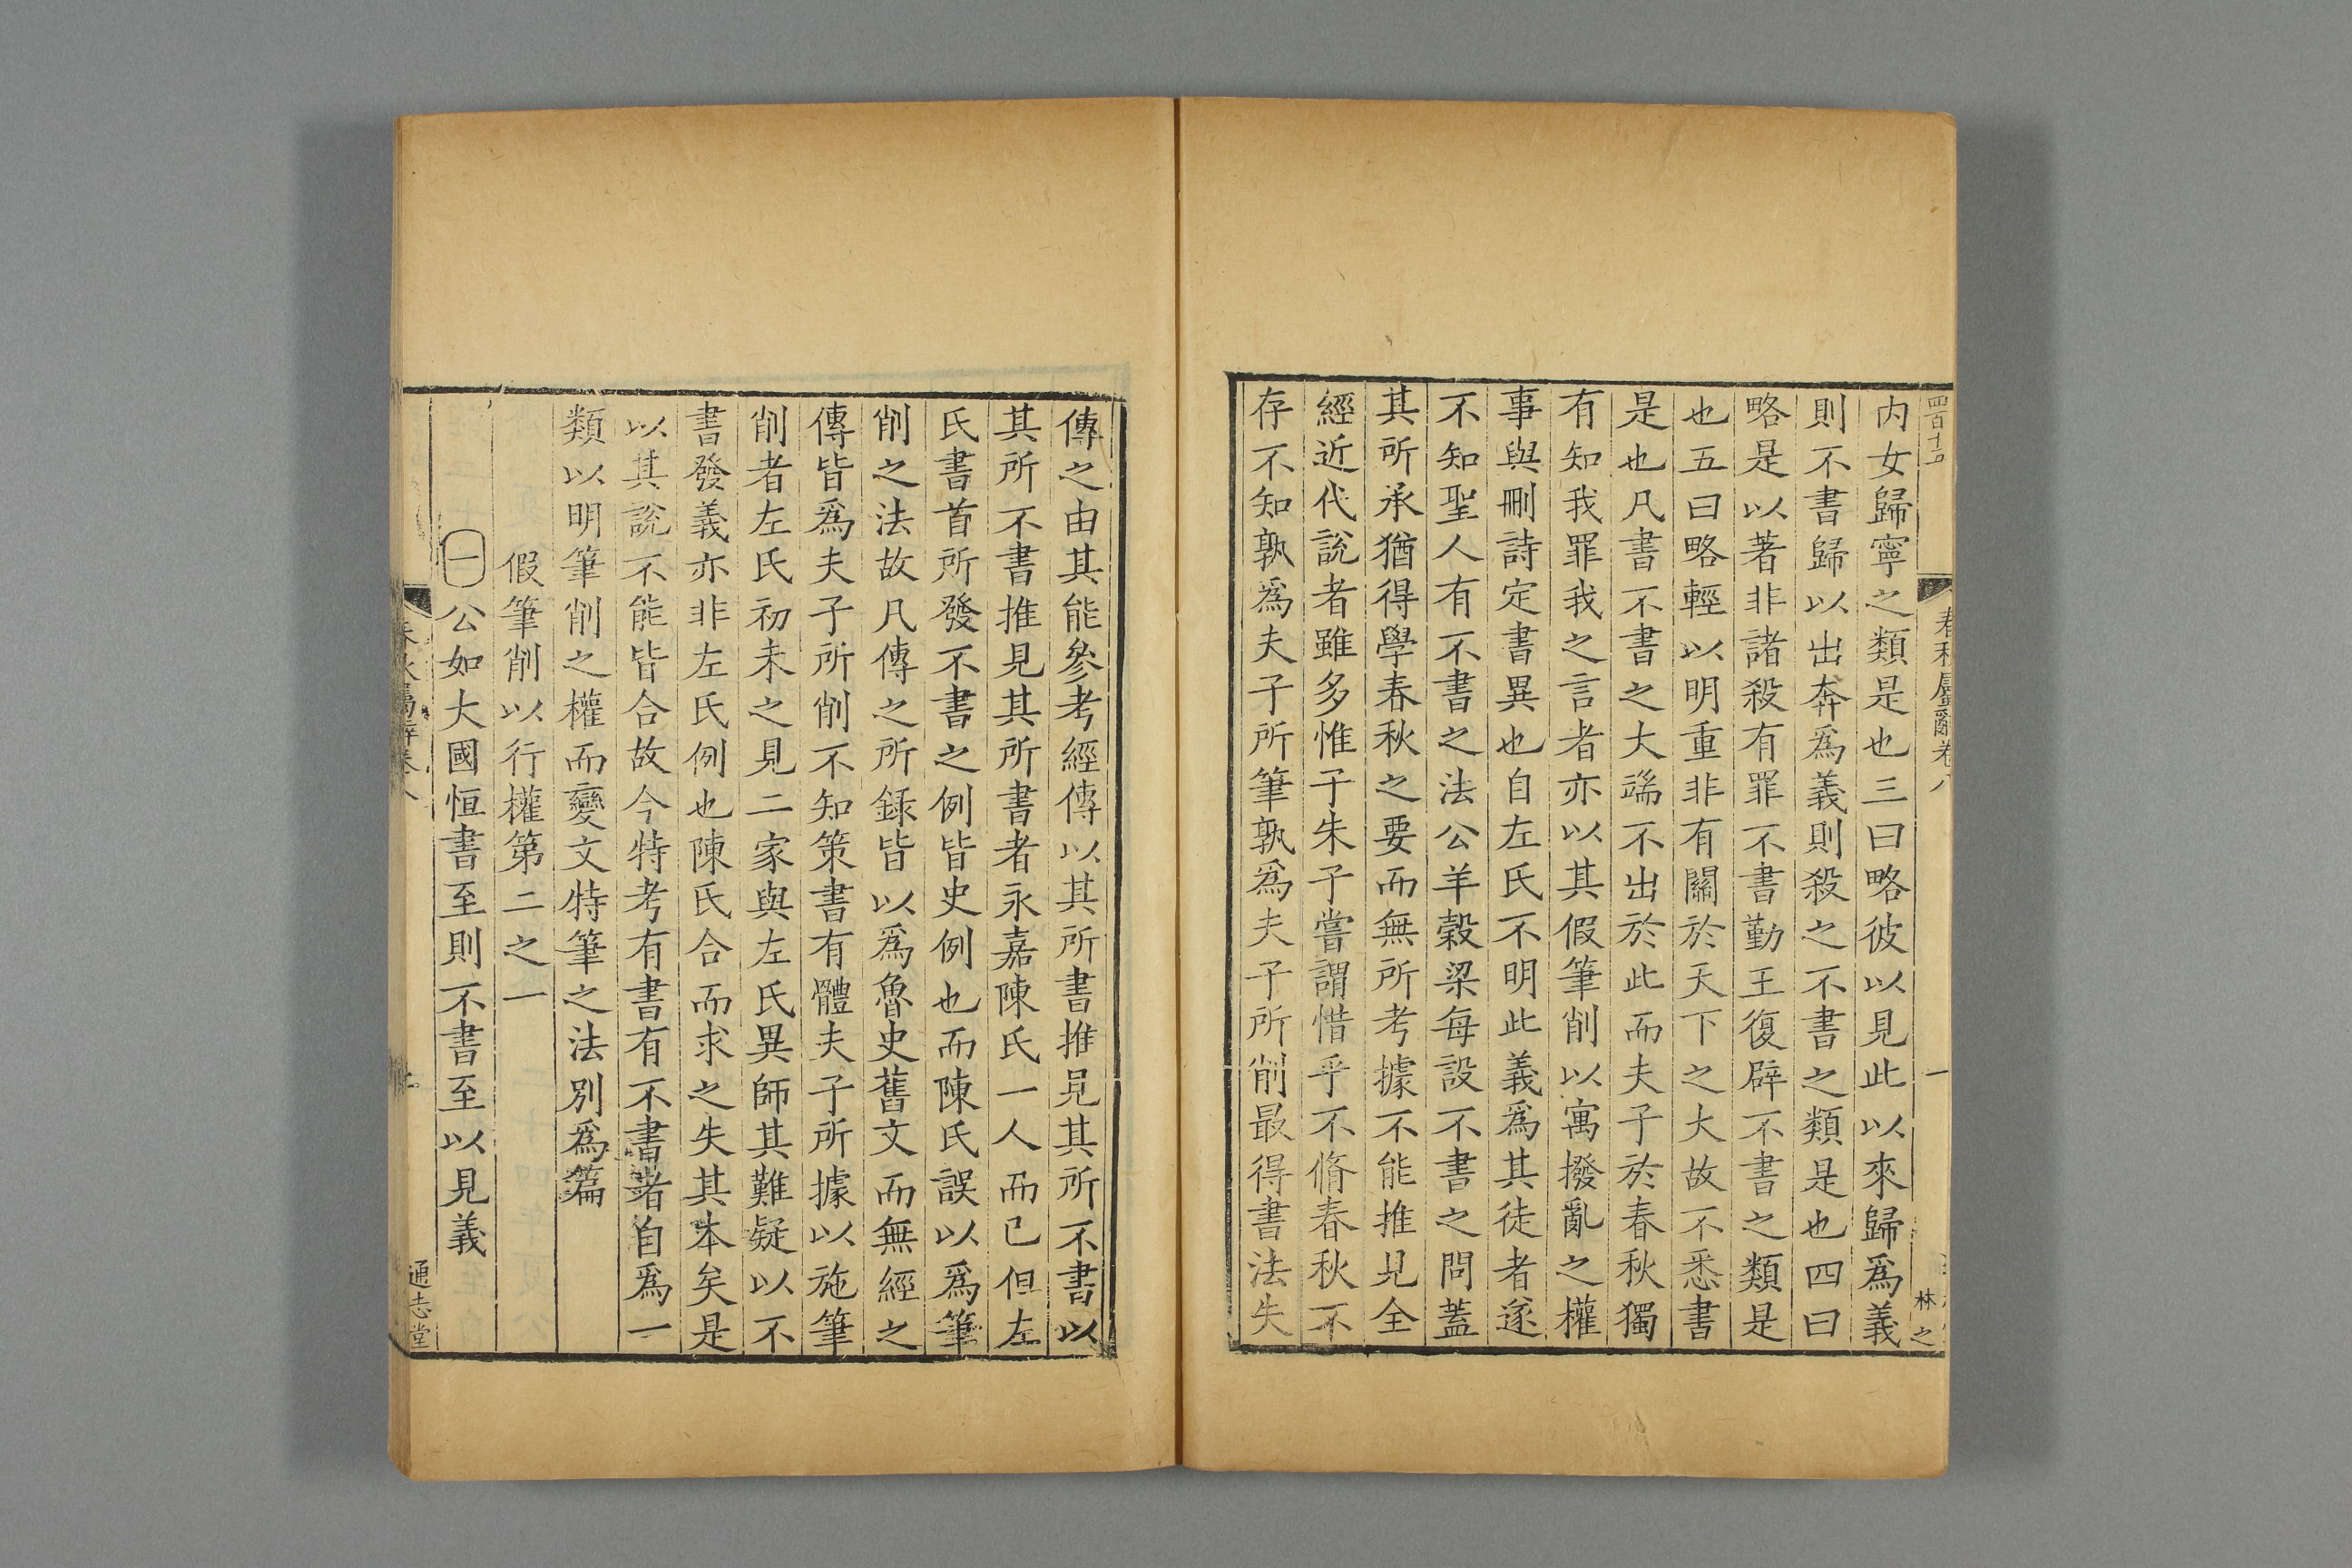 四百十五
春秋屬辭卷八
一
林之
内女歸寧之類是也三曰略彼以見此以來歸爲義
則不書歸以出奔爲義則殺之不書之類是也四曰
略是以著非諸殺有罪不書勤王復辟不書之類是
也五曰略輕以明重非有關於天下之大故不悉書
是也凡書不書之大端不出於此而夫子於春秋獨
有知我罪我之言者亦以其假筆削以寓撥亂之權
事與刪詩定書異也自左氏不明此義爲其徒者遂
不知聖人有不書之法公羊榖梁每設不書之問蓋
其所承猶得學春秋之要而無所考據不能推見全
經近代說者雖多惟子朱子嘗謂惜乎不脩春秋不
存不知孰爲夫子所筆孰爲夫子所削最得書法失
傳之由其能參考經傳以其所書推見其所不書以
其所不書推見其所書者永嘉陳氏一人而已但左
氏書首所發不書之例皆史例也而陳氏誤以爲筆
削之法故凡傳之所録皆以爲魯史舊文而無經之
傳皆爲夫子所削不知策書有體夫子所據以施筆
削者左氏初未之見二家與左氏異師其難疑以不
書發義亦非左氏例也陳氏合而求之失其本矣是
以其說不能皆合故今特考有書有不書者自爲一
類以明筆削之權而變文特筆之法別爲篇
假筆削以行權第二之一
一公如大國恒書至則不書至以見義
春秋屬辭卷八
通志堂